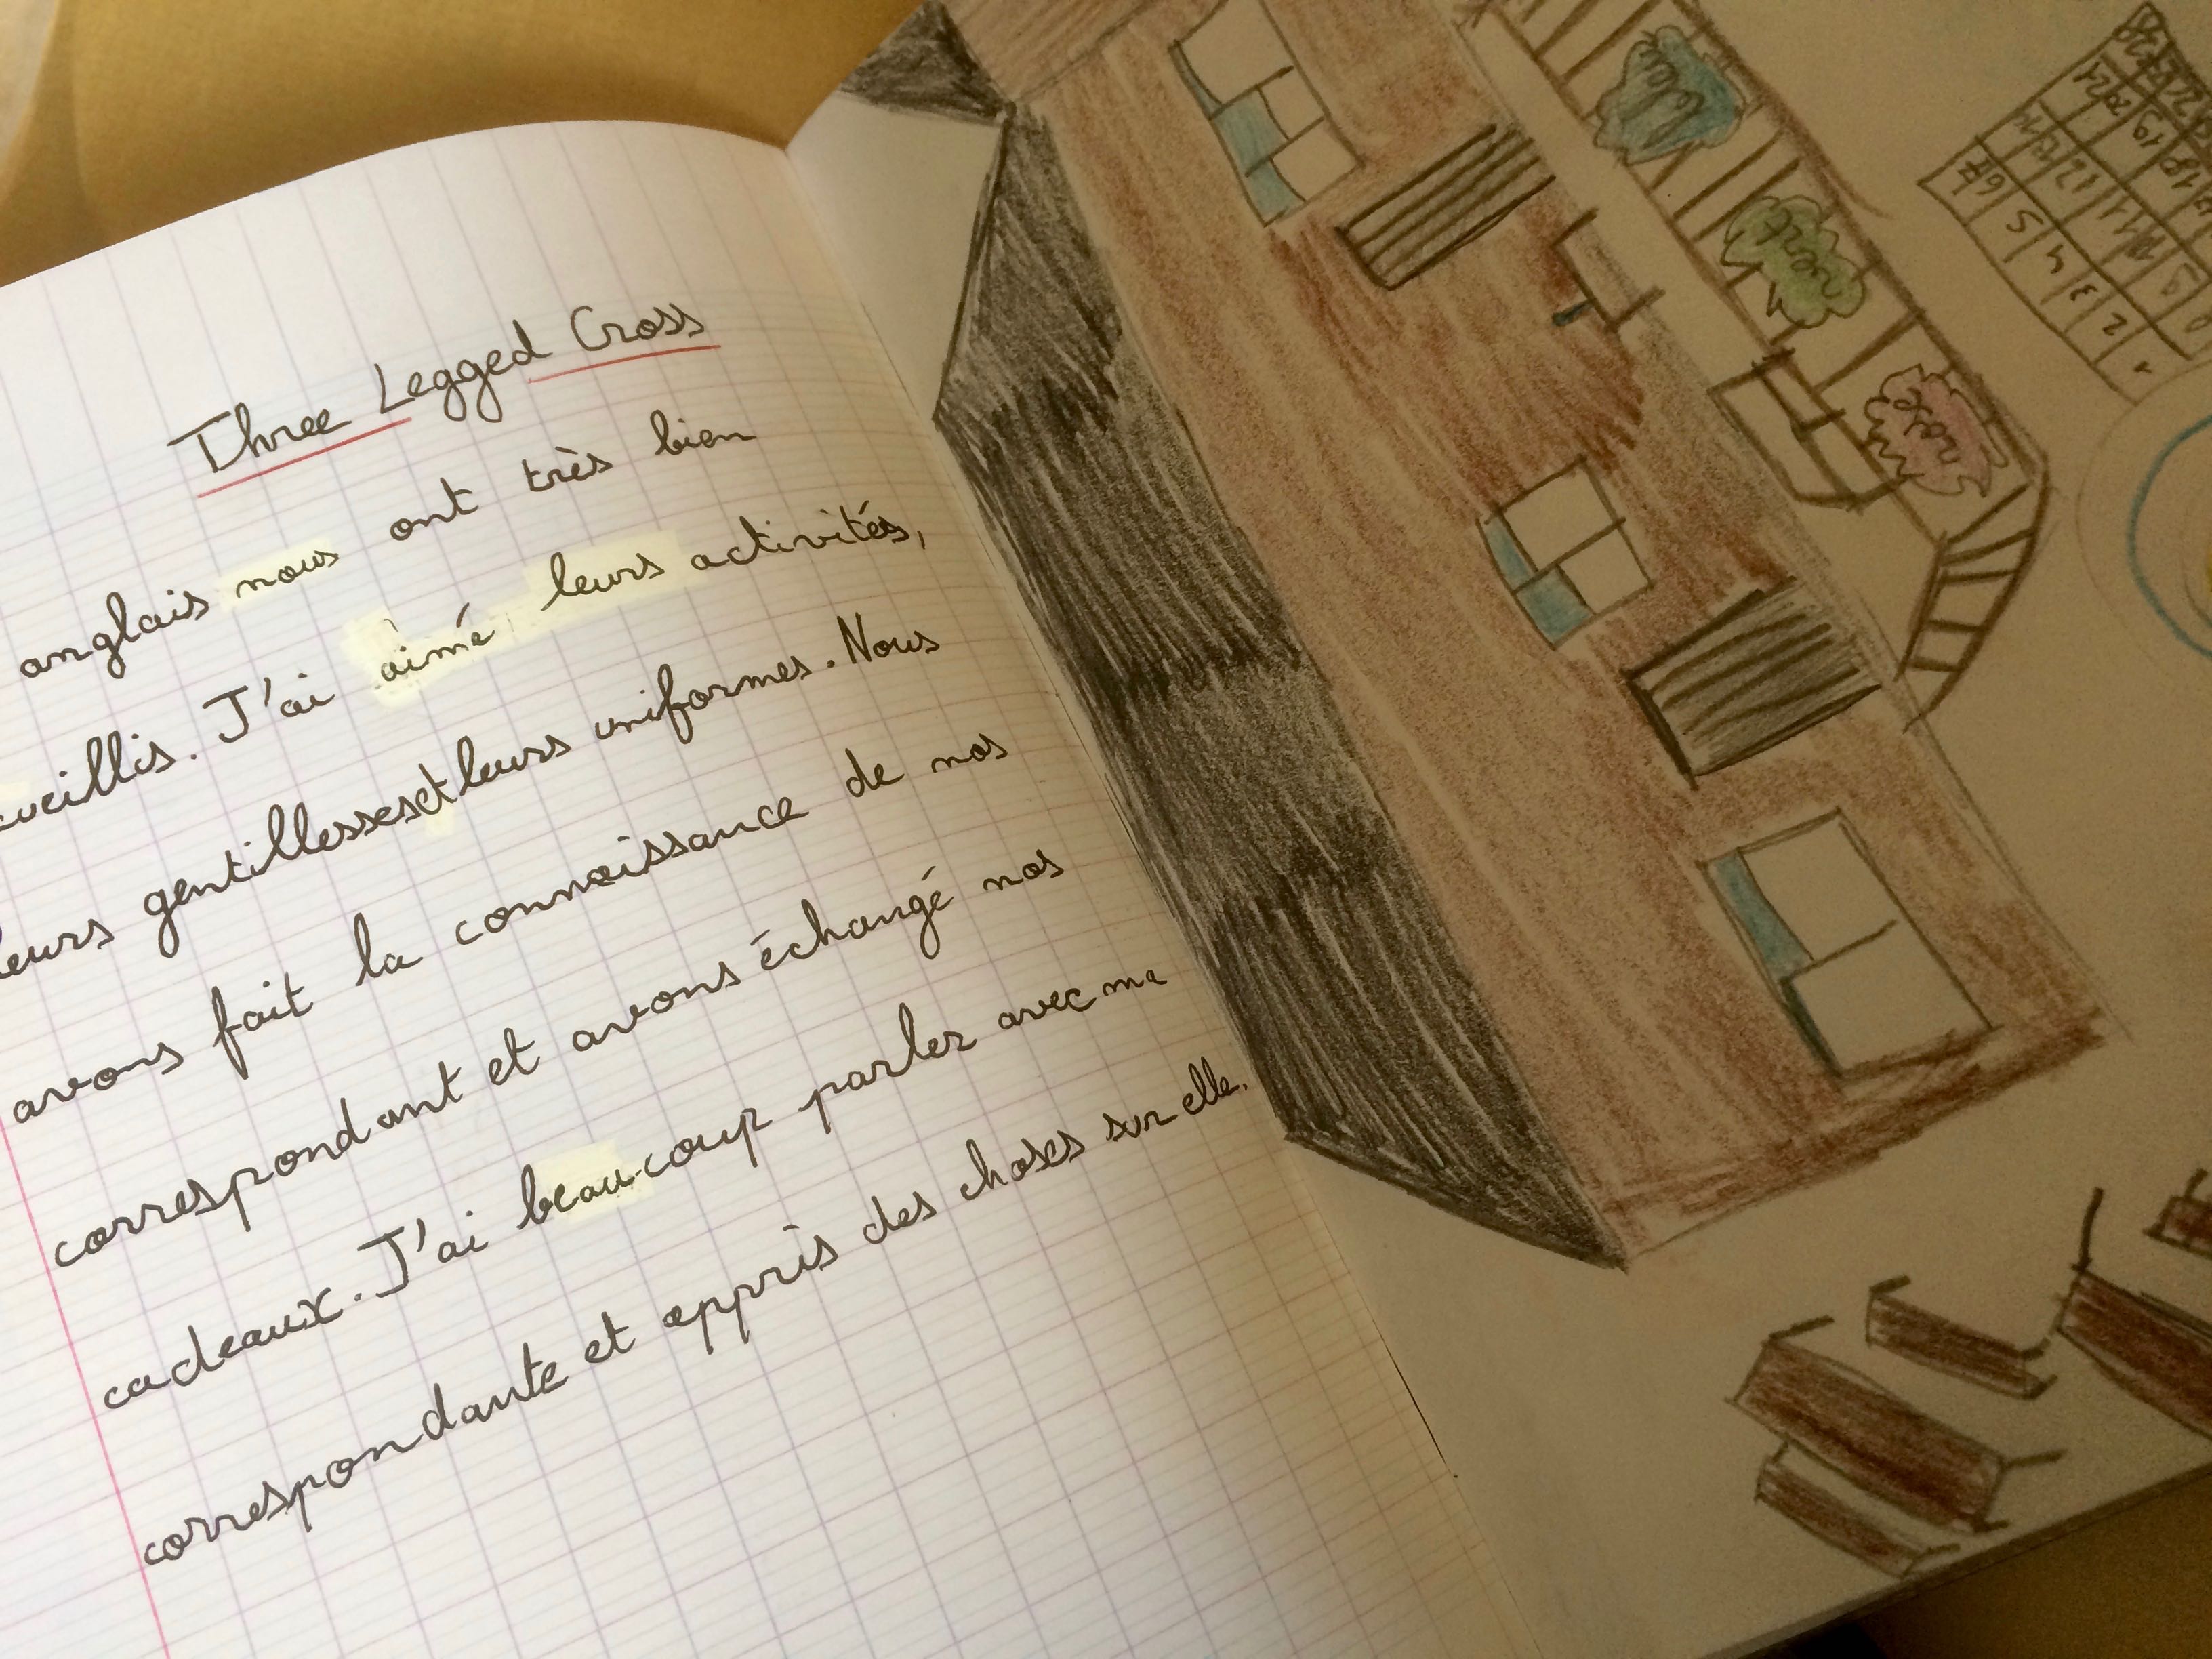 Three Legged Cross
anglais nous ont très bien
ueillis. J'ai aimé leurs activités,
leurs gentillesses et leurs uniformes. Nous
avons fait la connaissance de nos
correspondant et avons échangé nos
cadeaux. J'ai beaucoup parler avec ma
correspondante et appris des choses sur elle.
vert
1 2 3 4 5 6